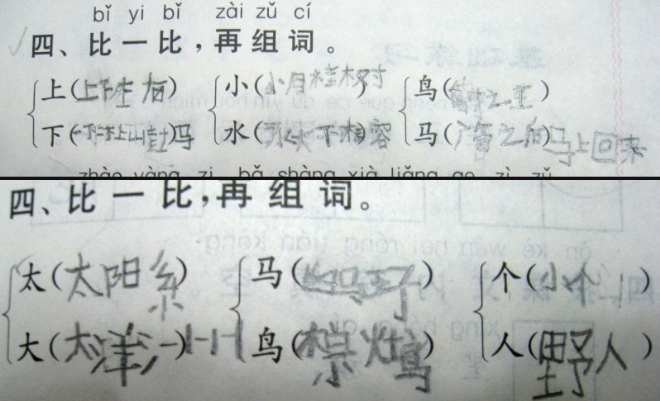 bǐ yi bǐ zài zǔ cí
四、比一比，再组词。
上(上下左右) 小(小月桂树) 鸟(之王)
下( 水(水火不相容) 马(广告之后)马上回来
zhào yàng zi bǎ shàng xià liǎng ge zì zǔ
四、比一比，再组词。
太(太阳系) 马( ) 个(小个)
大(大洋洲) 鸟(棕灶鸟) 人(野人)